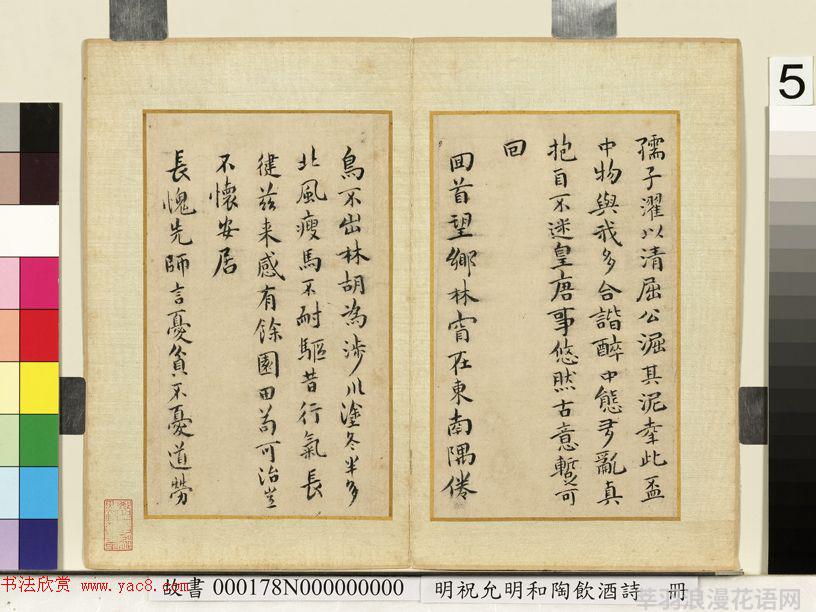 孺子濯以清屈公淈其泥幸此盃
中物與我多合諧醉中態多亂真
抱自不迷皇唐事悠然古意暫可
回
回首望鄉林在東南隅倦
鳥不出林胡為涉川塗冬半多
北風瘦馬不耐驅昔行氣長
健茲来感有餘園田苟可治豈
不懷安居
長愧先師言憂貧不憂道勞
5
书法欣赏 www.yac8.com
故書 000178N000000000 明祝允明和陶飲酒詩 冊
莘羽浪漫花语网